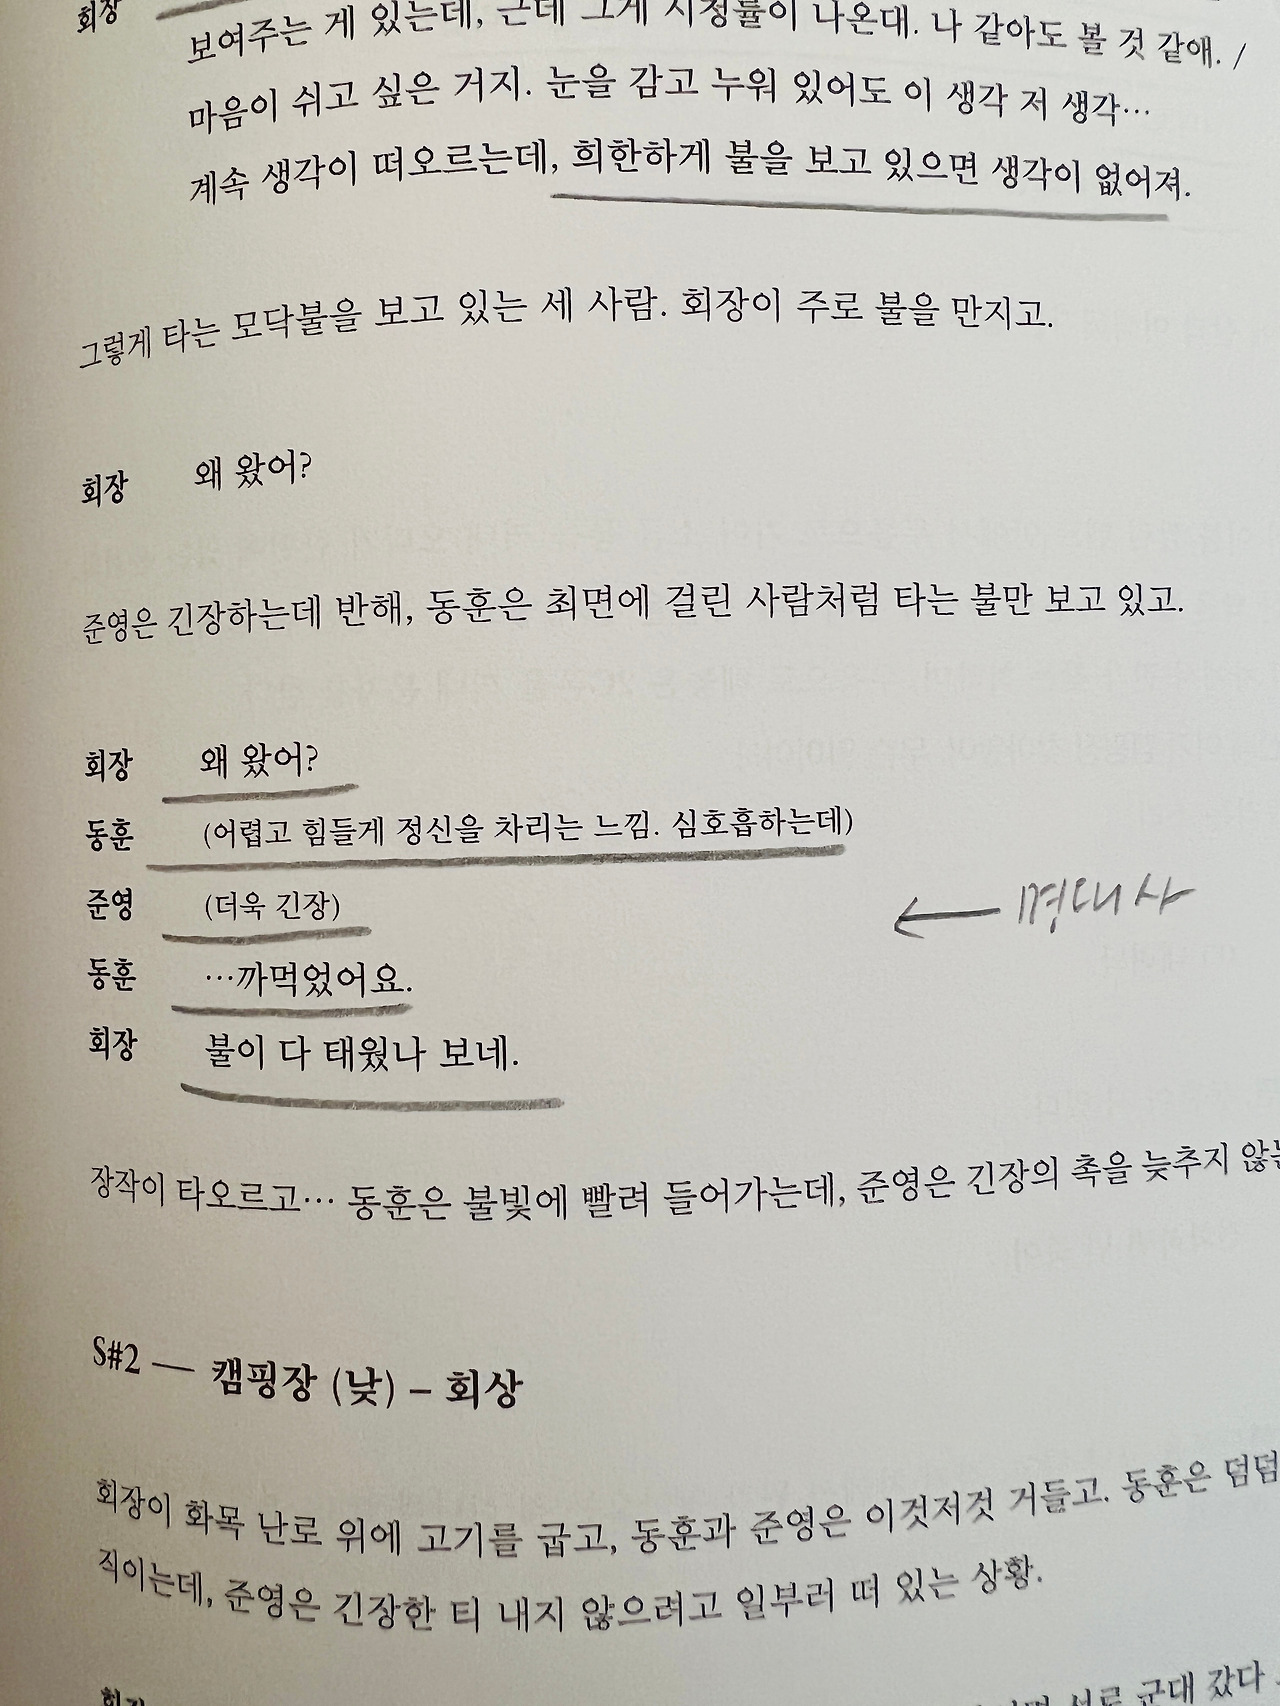 회장
보여주는 게 있는데, 근데 그게 시청률이 나온대. 나 같아도 볼 것 같애. /
마음이 쉬고 싶은 거지. 눈을 감고 누워 있어도 이 생각 저 생각…
계속 생각이 떠오르는데, 희한하게 불을 보고 있으면 생각이 없어져.
그렇게 타는 모닥불을 보고 있는 세 사람. 회장이 주로 불을 만지고.
회장 왜 왔어?
준영은 긴장하는데 반해, 동훈은 최면에 걸린 사람처럼 타는 불만 보고 있고.
회장 왜 왔어?
동훈 (어렵고 힘들게 정신을 차리는 느낌. 심호흡하는데)
준영 (더욱 긴장)
← 명대사
동훈 …까먹었어요.
회장 불이 다 태웠나 보네.
장작이 타오르고… 동훈은 불빛에 빨려 들어가는데, 준영은 긴장의 촉을 늦추지 않는
S#2 — 캠핑장 (낮) – 회상
회장이 화목 난로 위에 고기를 굽고, 동훈과 준영은 이것저것 거들고. 동훈은 덤덤
직이는데, 준영은 긴장한 티 내지 않으려고 일부러 떠 있는 상황.
회장 서로 군대 갔다